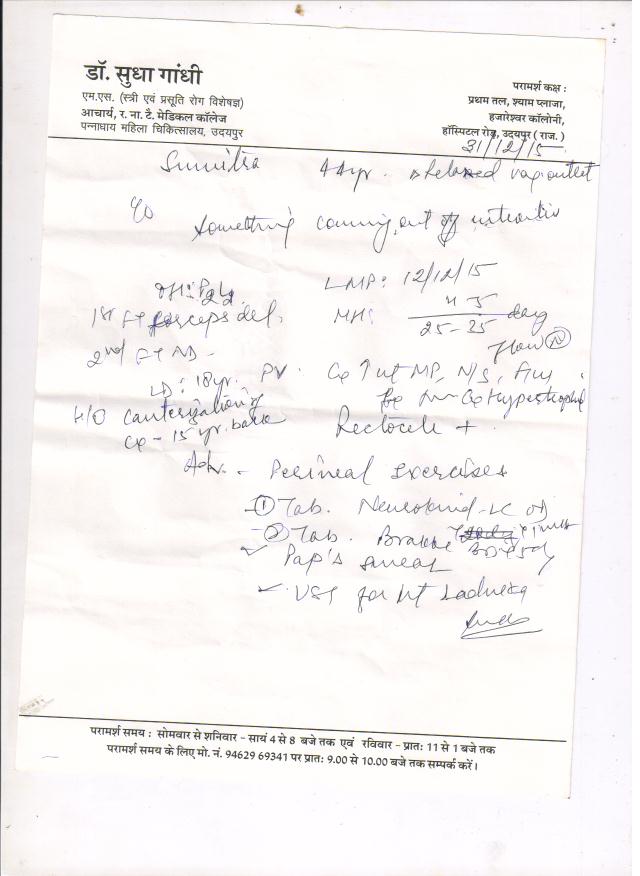 डॉ. सुधा गांधी
एम.एस. (स्त्री एवं प्रसूति रोग विशेषज्ञ)
आचार्य, र. ना. टै. मेडिकल कॉलेज
पन्नाधाय महिला चिकित्सालय, उदयपुर
परामर्श कक्ष :
प्रथम तल, श्याम प्लाजा,
हजारेश्वर कॉलोनी,
हॉस्पिटल रोड़, उदयपुर ( राज. )
31/12/15
44yr. relaxed vag. outlet
c/o something coming out of introitus
LMP: 12/12/15
1st FT forceps del.
MH: 4-5
25-35 day
2nd FT ND -
flow (N)
LD: 18yr. PV. Cx
Cx Hypertrophied
H/O cauterization of
Cx - 15 yr. back
Rectocele +
Adv. - Perineal Exercises
① Tab. Neurokind-LC OD
② Tab.
✓ Pap's smear
✓ USG for
परामर्श समय : सोमवार से शनिवार - सायं 4 से 8 बजे तक एवं रविवार - प्रातः 11 से 1 बजे तक
परामर्श समय के लिए मो. नं. 94629 69341 पर प्रातः 9.00 से 10.00 बजे तक सम्पर्क करें।